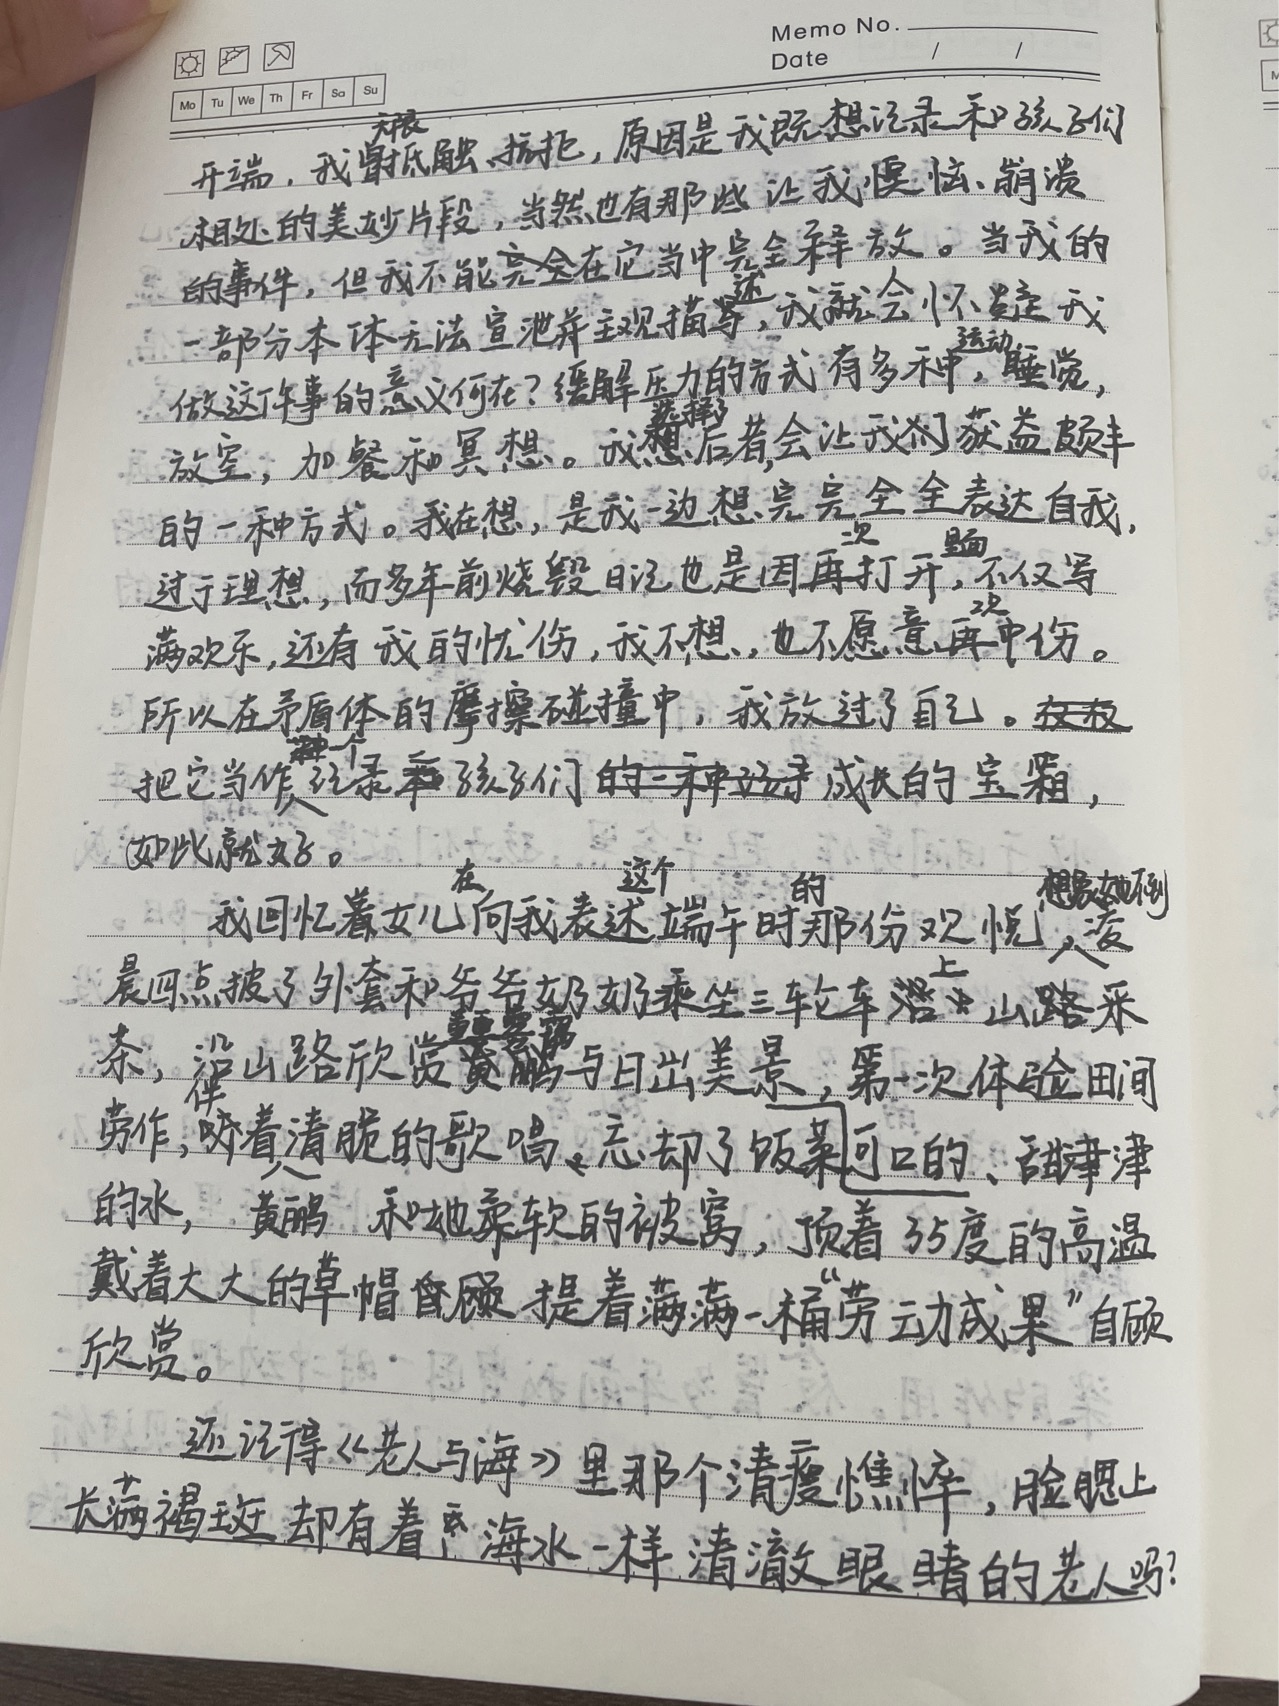 Memo No.
Date / /
Mo Tu We Th Fr Sa Su
天然
开端，我抵触、抗拒，原因是我既想记录和孩子们
相处的美妙片段，当然也有那些让我懊恼、崩溃
的事件，但我不能完全在它当中完全释放。当我的
述
一部分本体无法宣泄并主观描，我就会怀疑我
运动
做这件事的意义何在？缓解压力的方式有多种，睡觉，
选择
放空，加餐和冥想。我想后者会让我们获益颇丰
的一种方式。我在想，是我一边想完完全全表达自我，
次 里面
过于理想，而多年前烧毁日记也是因再打开，不仅写
次
满欢乐，还有我的忧伤，我不想，也不愿意再中伤。
所以在矛盾体的摩擦碰撞中，我放过了自己。
一个
把它当作记录孩子们的一种记录成长的宝箱，
如此就好。
在 这个 的 想象她倒
我回忆着女儿向我表述端午时那份欢悦，凌
上
晨四点披了外套和爷爷奶奶乘坐三轮车沿山路采
云雾
茶，沿山路欣赏与日出美景，第一次体验田间
伴
劳作，着清脆的歌唱、忘却了饭菜可口的、甜津津
的水，黄鹂 和她柔软的被窝，顶着35度的高温
戴着大大的草帽自顾提着满满一桶“劳动成果”自顾
欣赏。
还记得《老人与海》里那个清瘦憔悴，脸腮上
长满褐斑却有着海水一样清澈眼睛的老人吗？